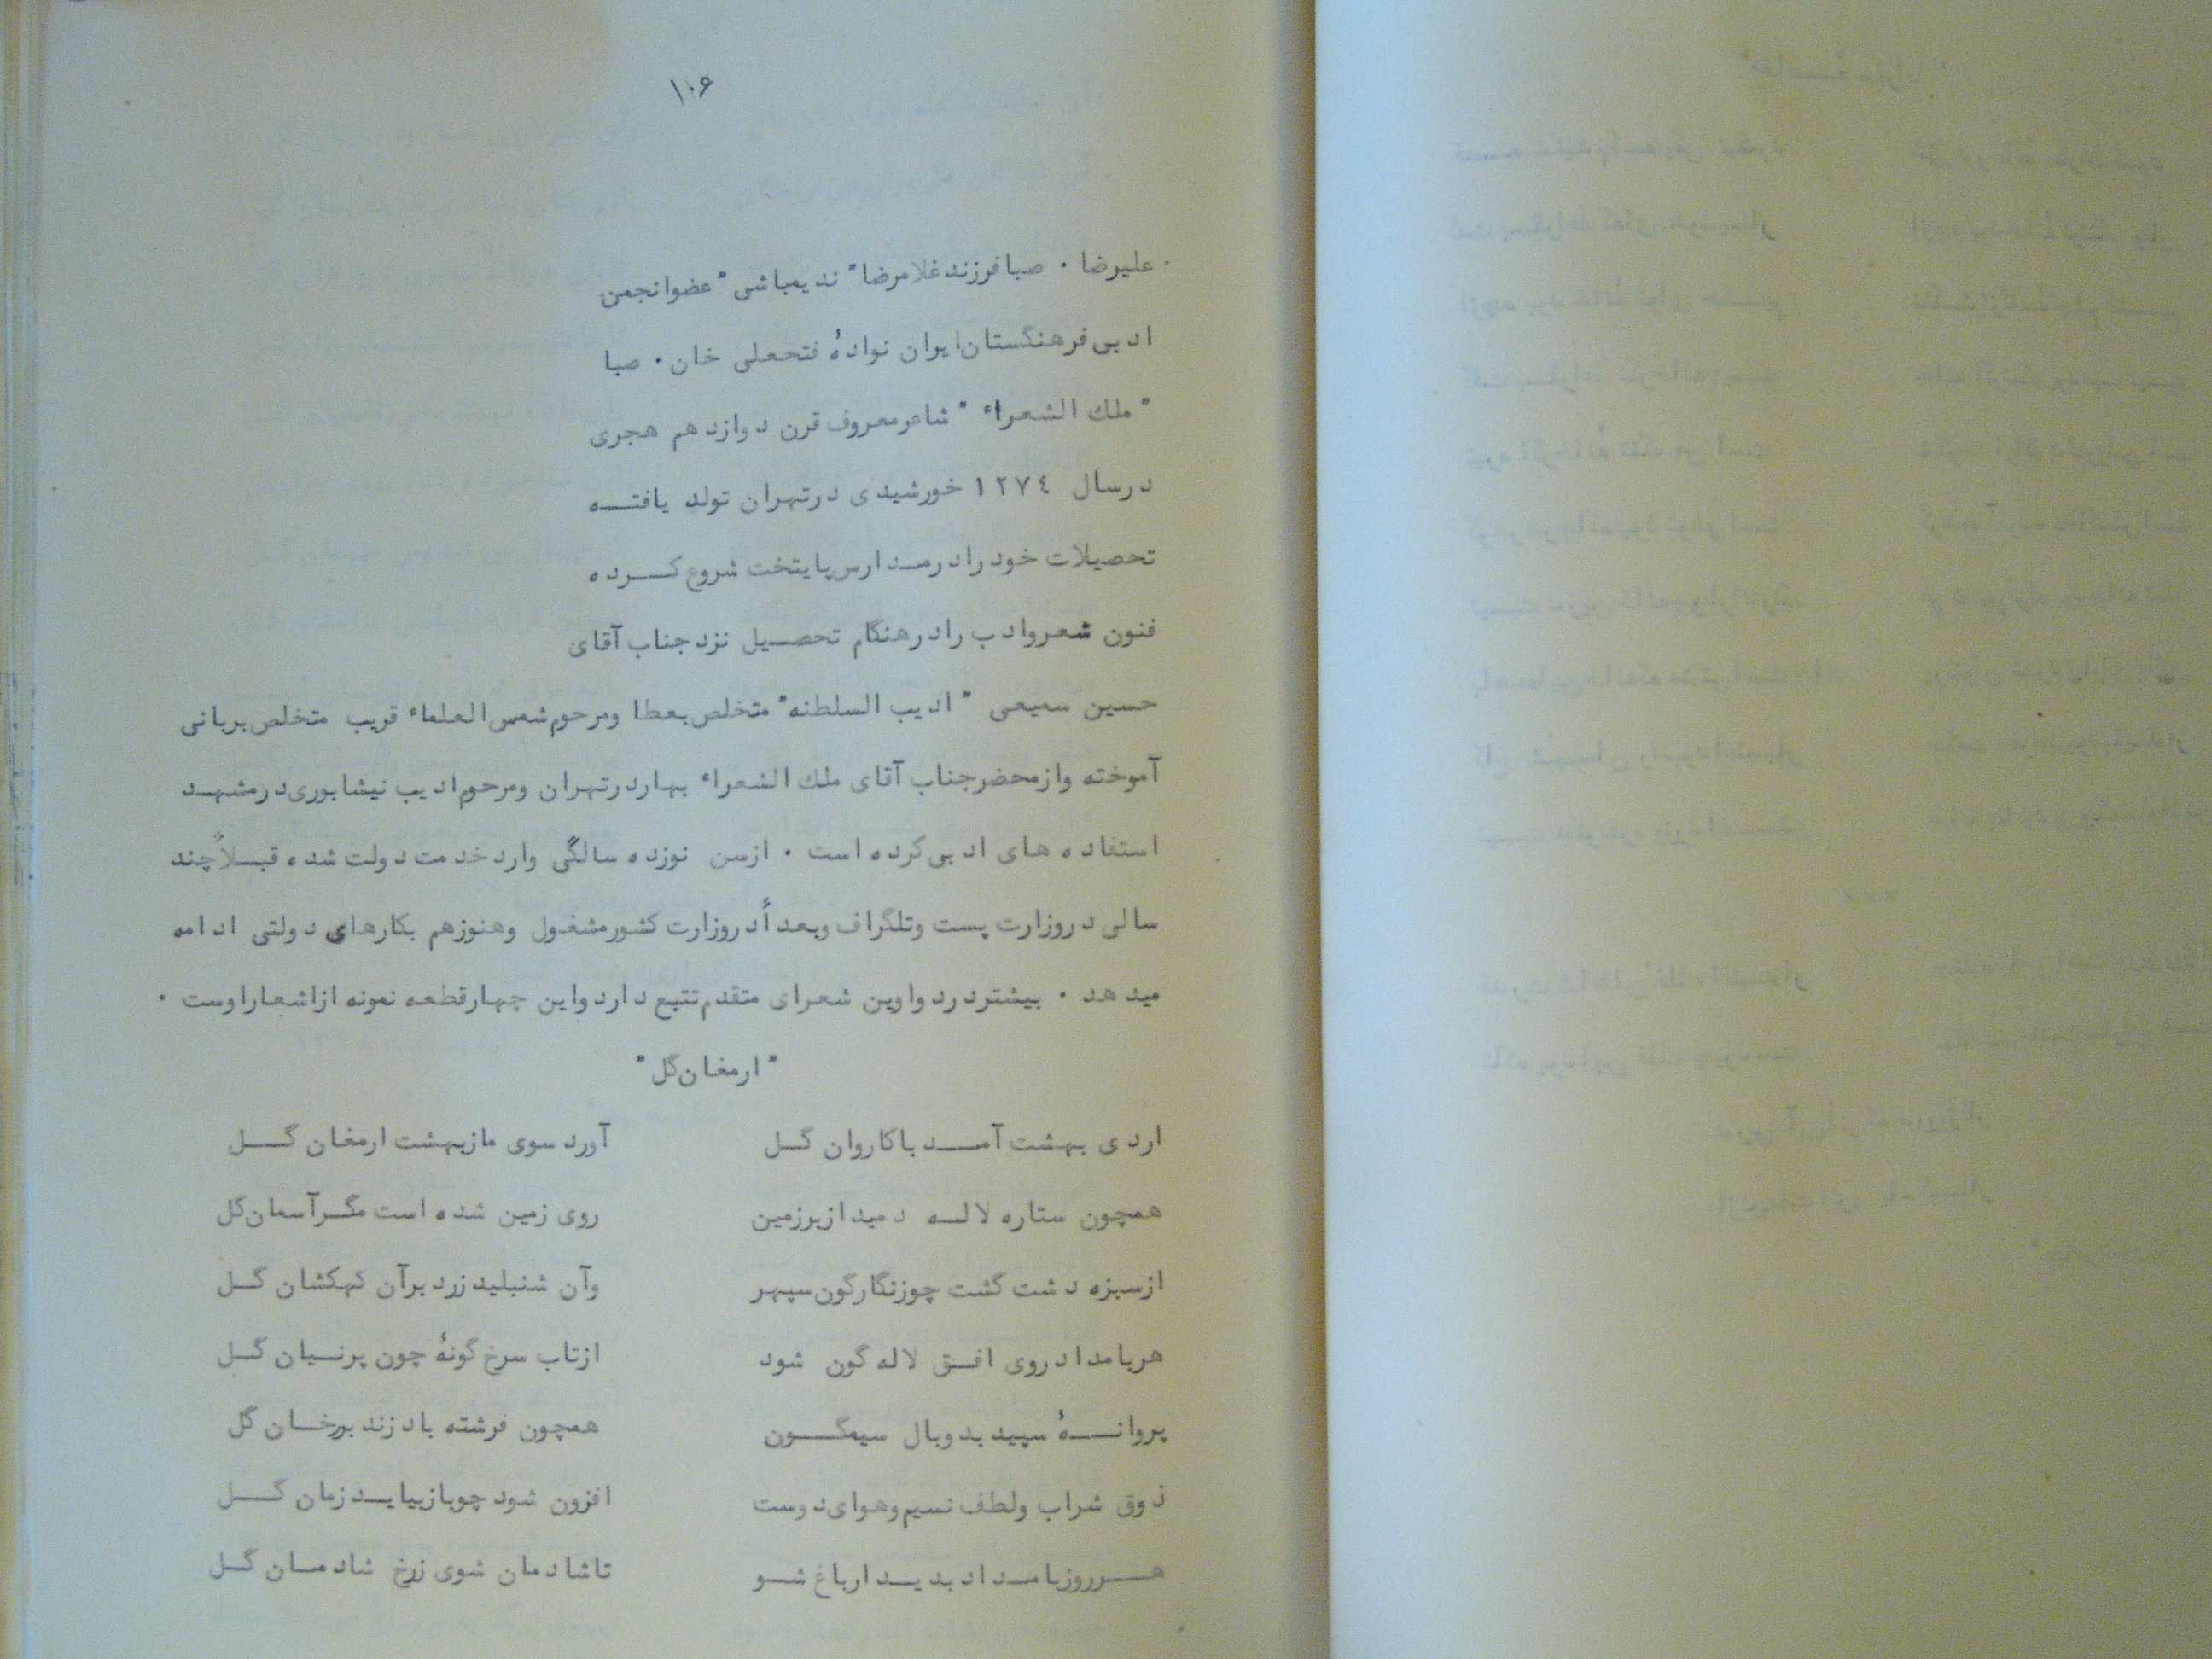 ۱۰۶
· علیرضا · صبا فرزند غلامرضا " ندیمباشی " عضو انجمن
ادبی فرهنگستان ایران نوادهٔ فتحعلی خان · صبا
" ملك الشعراء " شاعر معروف قرن دوازدهم هجری
در سال ١٢٧٤ خورشیدی در تهران تولد یافته
تحصیلات خود را در مدارس پایتخت شروع کرده
فنون شعر و ادب را در هنگام تحصیل نزد جناب آقای
حسین سمیعی " ادیب السلطنه " متخلص بعطا و مرحوم شمس العلماء قریب متخلص بربانی
آموخته و از محضر جناب آقای ملك الشعراء بهار در تهران و مرحوم ادیب نیشابوری در مشهد
استفاده های ادبی کرده است · از سن نوزده سالگی وارد خدمت دولت شده قبلاً چند
سالی در وزارت پست و تلگراف و بعداً در وزارت کشور مشغول و هنوز هم بکارهای دولتی ادامه
میدهد · بیشتر در دواوین شعرای متقدم تتبع دارد و این چهار قطعه نمونه از اشعار اوست ·
" ارمغان گل "
اردی بهشت آمد با کاروان گل آورد سوی ما ز بهشت ارمغان گل
همچون ستاره لاله دمید از بر زمین روی زمین شده است مگر آسمان گل
از سبزه دشت گشت چو زنگارگون سپهر وآن شنبلید زرد بر آن کهکشان گل
هر بامداد روی افق لاله گون شود از تاب سرخ گونهٔ چون پرنیان گل
پروانهٔ سپید بدو بال سیمگون همچون فرشته باد زند بر رخان گل
ذوق شراب و لطف نسیم و هوای دوست افزون شود چو باز بیاید زمان گل
هر روز بامداد بدیدار باغ شو تا شادمان شوی ز رخ شادمان گل